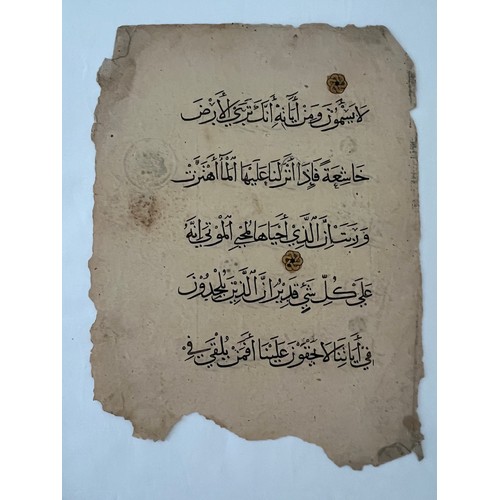 لَا يَسْمُونَ وَمِنْ أَيَاتِهِ أَنَّكَ تَرَى الْأَرْضَ
خَاشِعَةً فَإِذَا أَنْزَلْنَا عَلَيْهَا الْمَاءَ اهْتَزَّتْ
وَرَبَتْ إِنَّ الَّذِي أَحْيَاهَا لَمُحْيِ الْمَوْتَى إِنَّهُ
عَلَى كُلِّ شَيْءٍ قَدِيرٌ إِنَّ الَّذِينَ يُلْحِدُونَ
فِي أَيَاتِنَا لَا يَخْفَوْنَ عَلَيْنَا أَفَمَنْ يُلْقَى فِي